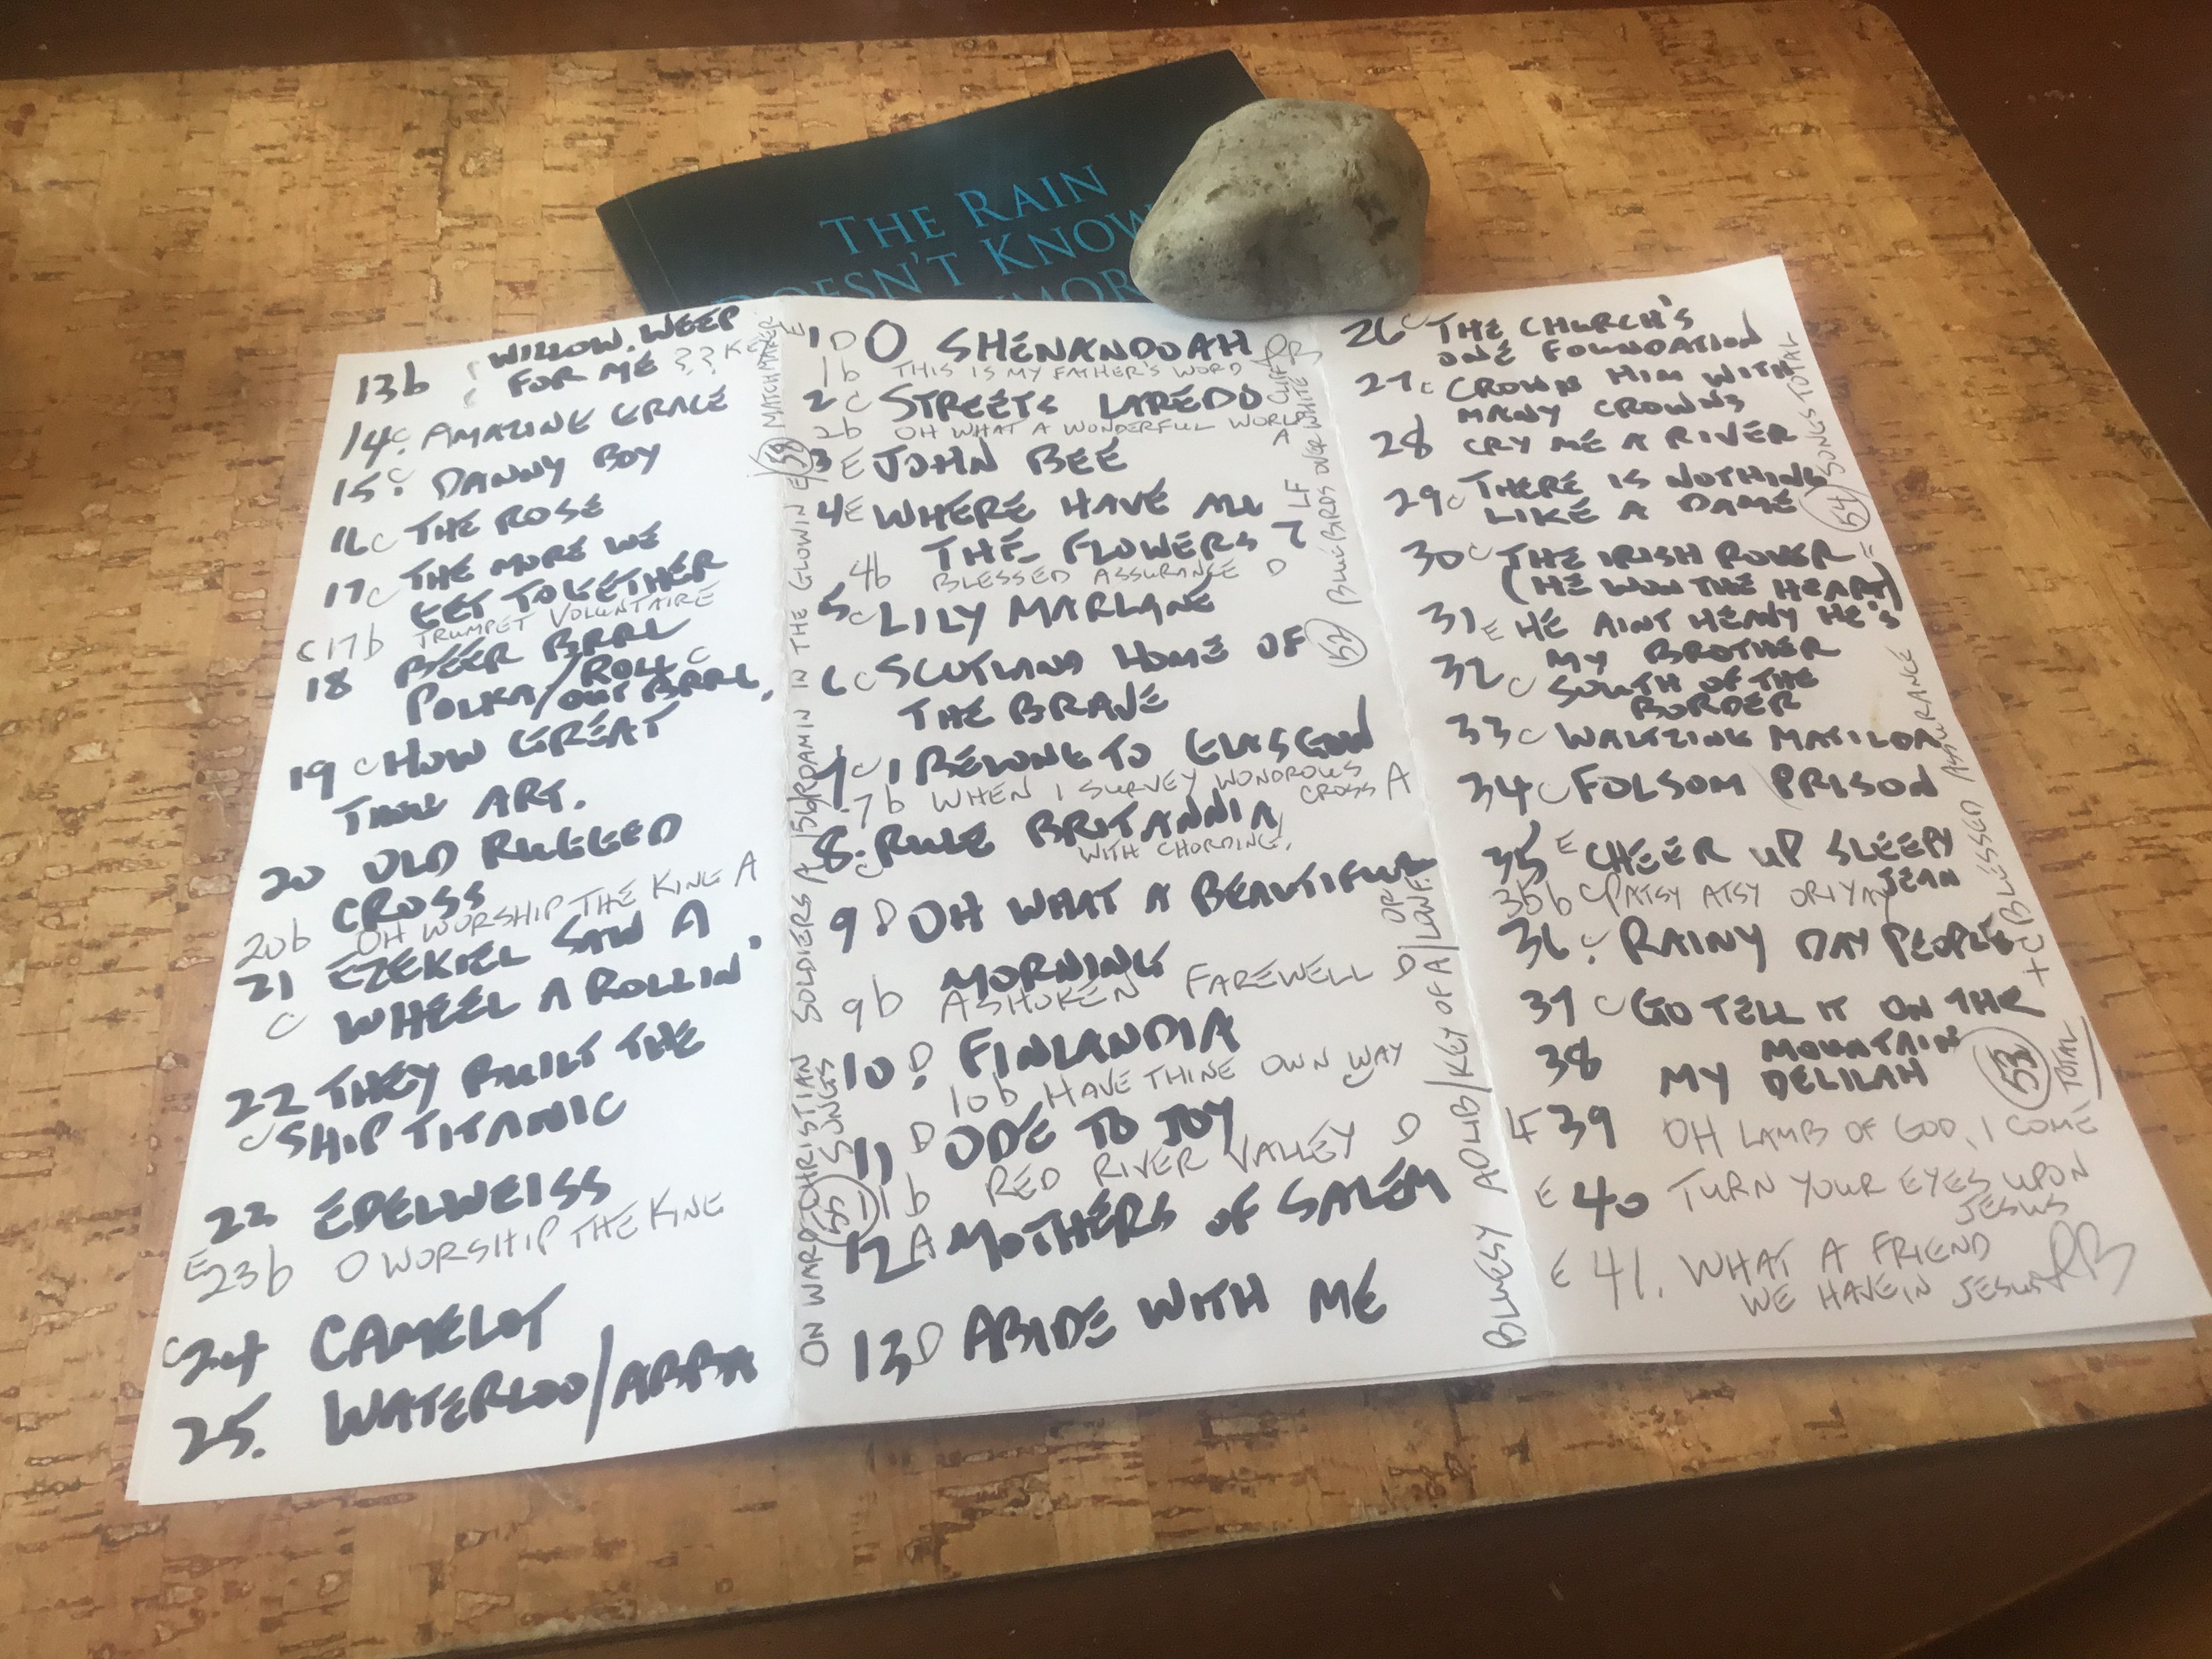 THE RAIN
DOESN'T KNOW
13b WILLOW WEEP
FOR ME ?? KEY
14 C AMAZING GRACE
15 C DANNY BOY
16 C THE ROSE
17 C THE MORE WE
GET TOGETHER
C 17b TRUMPET VOLUNTAIRE
18 BEER BRRL
POLKA/ROLL C
OUT BRRL,
19 C HOW GREAT
THOU ART.
20 OLD RUGGED
CROSS
20b OH WORSHIP THE KING A
21 EZEKIEL SAW A
C WHEEL A ROLLIN'
22 THEY BUILT THE
C SHIP TITANIC
22 EDELWEISS
E 23b O WORSHIP THE KING
C 24 CAMELOT
25. WATERLOO/ABBA
ON WARD CHRISTIAN SOLDIERS A (56) ROAMIN IN THE GLOWIN E (58) MATCHMAKER E
(55) SONGS
1 D O SHENANDOAH RB
1b THIS IS MY FATHER'S WORD
2 C STREETS LAREDO
2b OH WHAT A WONDERFUL WORLD A
3 E JOHN BEE
4 E WHERE HAVE ALL
THE FLOWERS ?
4b BLESSED ASSURANCE D
5 C LILY MARLANE
6 C SCOTLAND HOME OF
THE BRAVE
7 C I BELONG TO GLASGOW
7b WHEN I SURVEY WONDROUS
CROSS A
8. C RULE BRITANNIA,
WITH CHORDING,
9 D OH WHAT A BEAUTIFUL
MORNING
9b ASHOKEN FAREWELL D
10 D FINLANDIA
10b HAVE THINE OWN WAY
C
11 D ODE TO JOY
11b RED RIVER VALLEY D
12 A MOTHERS OF SALEM
13 D ABIDE WITH ME
BLUESY ADLIB/KEY OF A/LOW F.
OR
(52) BLUE BIRDS OVER WHITE CLIFF
26 C THE CHURCH'S
ONE FOUNDATION
27 C CROWN HIM WITH
MANY CROWNS
28 CRY ME A RIVER
29 C THERE IS NOTHING
LIKE A DAME
30 C THE IRISH ROVER =
(HE WON THE HEART)
31 E HE AINT HEAVY HE'S
MY BROTHER
32 C SOUTH OF THE
BORDER
33 C WALTZING MATILDA
34 C FOLSOM PRISON
35 E CHEER UP SLEEPY
JEAN
35b C PATSY ATSY ORIYAY
36 C RAINY DAY PEOPLE
37 C GO TELL IT ON THE
MOUNTAIN
38 MY DELILAH
F 39 OH LAMB OF GOD, I COME
E 40 TURN YOUR EYES UPON
JESUS
E 41. WHAT A FRIEND
WE HAVE IN JESUS RB
(54) SONGS TOTAL
+ CB BLESSED ASSURANCE
(53) TOTAL